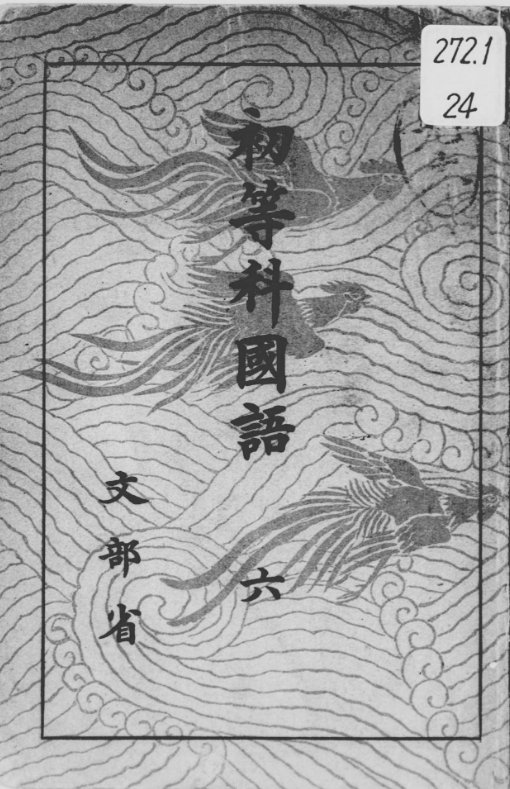 272.1
24
初等科國語
六
文部省